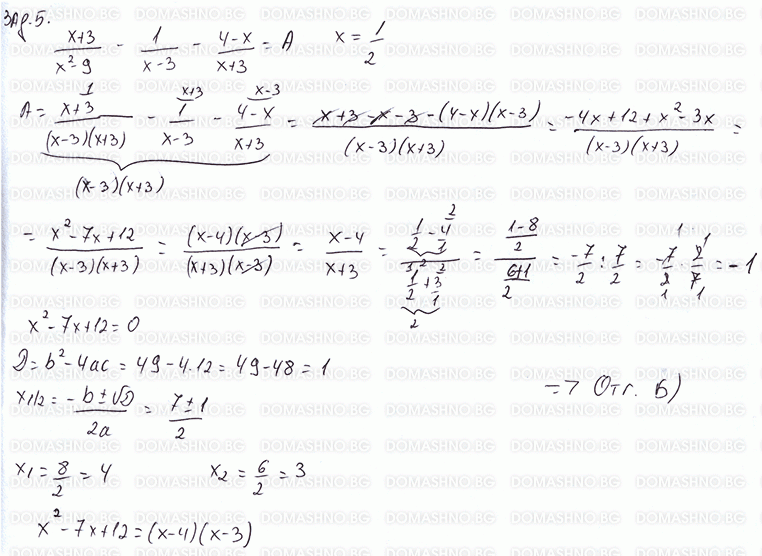 Зад.5.
(x+3)/(x²-9) - 1/(x-3) - (4-x)/(x+3) = A   x = 1/2
A = (x+3)/((x-3)(x+3)) - 1/(x-3) - (4-x)/(x+3) = (x+3-x-3-(4-x)(x-3))/((x-3)(x+3)) = (-4x+12+x²-3x)/((x-3)(x+3)) =
(x-3)(x+3)
= (x²-7x+12)/((x-3)(x+3)) = ((x-4)(x-3))/((x+3)(x-3)) = (x-4)/(x+3) = (1/2-4/1)/(1/2+3/1) = ((1-8)/2)/((6+1)/2) = -7/2 : 7/2 = -7/2 · 2/7 = -1
x²-7x+12=0
D=b²-4ac=49-4.12=49-48=1
x1/2 = (-b±√D)/2a = (7±1)/2
=> Отг. Б)
x₁=8/2=4   x₂=6/2=3
x²-7x+12=(x-4)(x-3)
DOMASHNO.BG